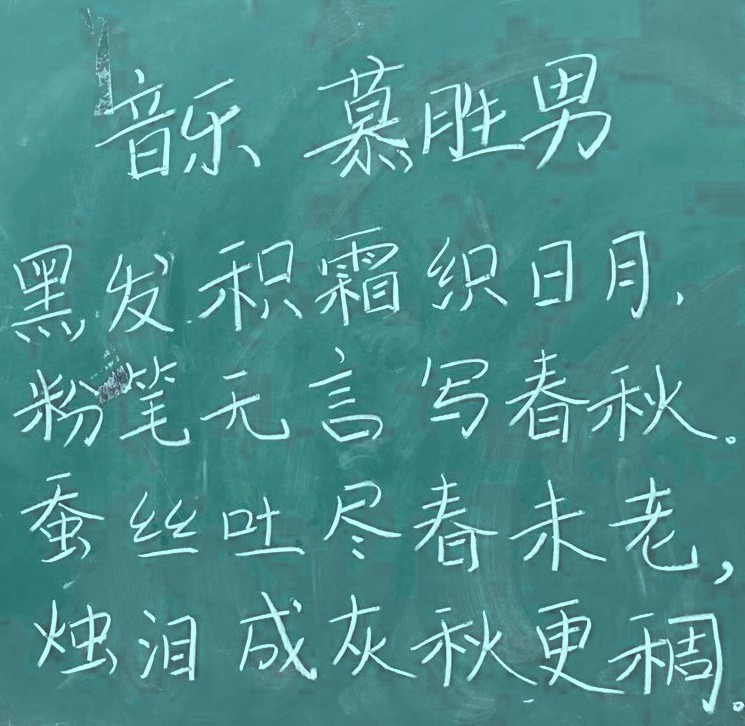 音乐 慕胜男
黑发积霜织日月,
粉笔无言写春秋。
蚕丝吐尽春未老,
烛泪成灰秋更稠。